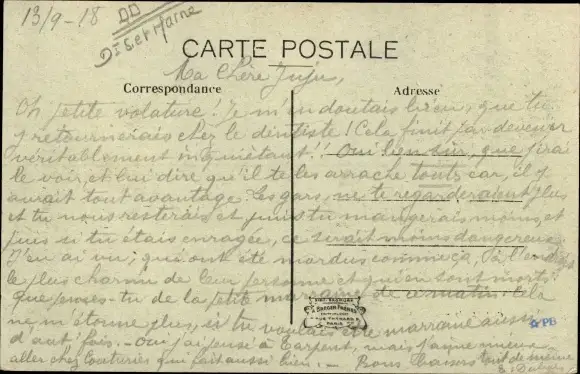 13/9-18
DD
Dt Set Marne
CARTE POSTALE
Ma Chère Juju,
Correspondance
Adresse
Oh petite volature! Je m'en doutais bien, que tu
y retournerais chez le dentiste! Cela finit par devenir
véritablement inquiétant!! Oui bien sûr, que j'irai
le voir, et lui dire qu'il te les arrache touts car, il y
aurait tout avantage. Les gars, ne te regarderaient plus
et tu nous resterais et puis tu mangerais moins, et
puis si tu étais enragée, ce serait moins dangereux
J'en ai vu, qui ont été mordus comme ça, à l'endroit
le plus charnu de leur personne et qui en sont morts
Que penses-tu de la petite marraine de ce matin. Cela
ne m'étonne plus, si tu voulais être marraine
d'août fois. - Oui j'ai pensé à mais j'aime mieux
aller chez qui fait aussi bien. - Bons baisers tout de même
BREGER FRERES
PARIS
PB